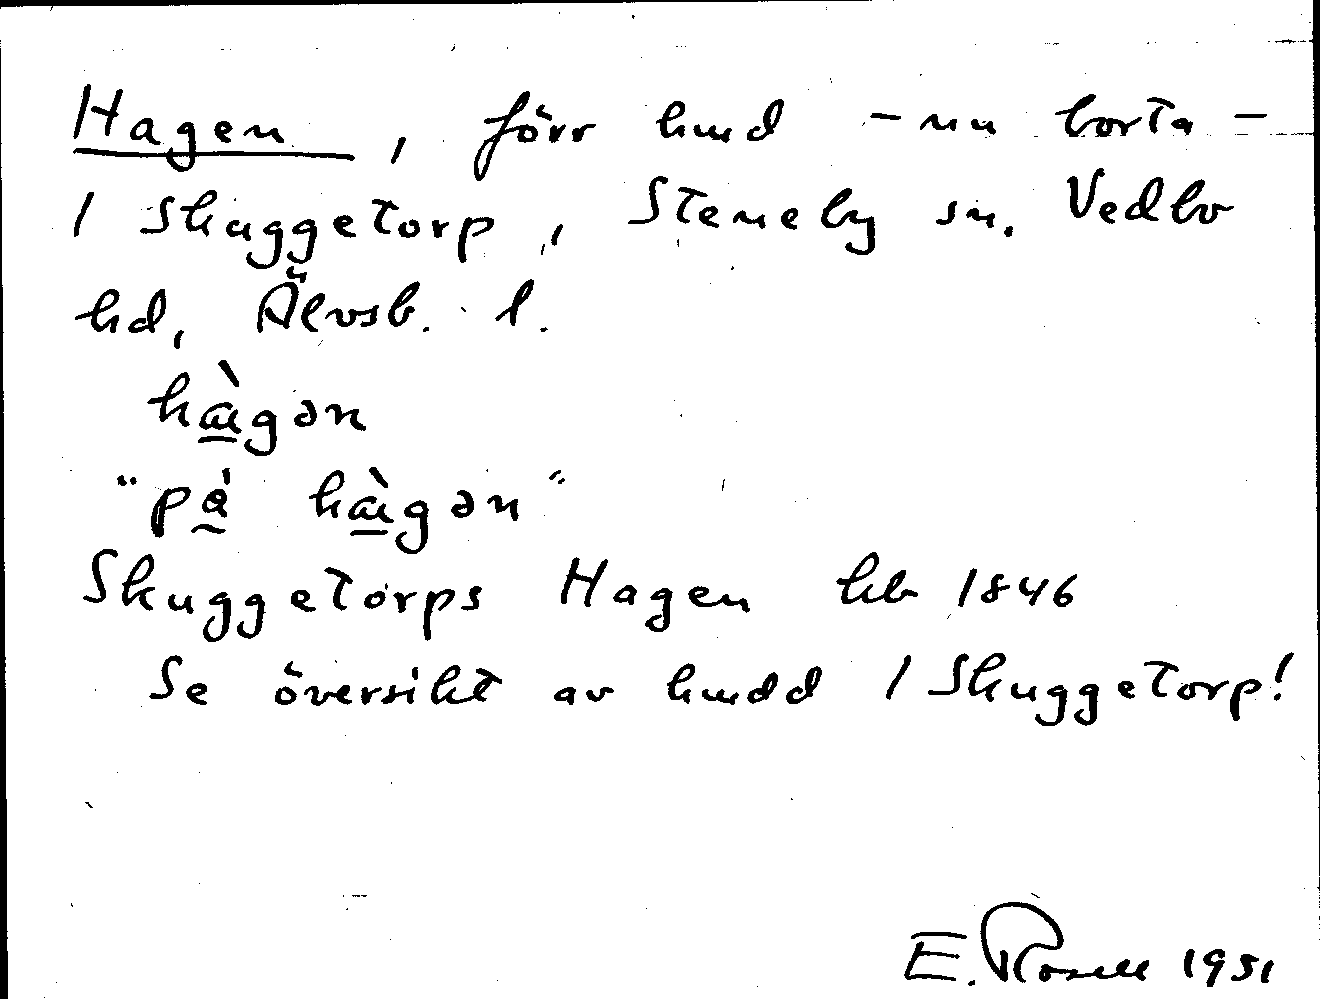 Hagen, förr hmd - nu borta -
i Skuggetorp, Steneby sn. Vedbo
hd, Älvsb. l.
hàgən
"pȧ hàgən"
Skuggetorps Hagen hb 1846
Se översikt av hmdd i Skuggetorp!
E. Rosell 1951